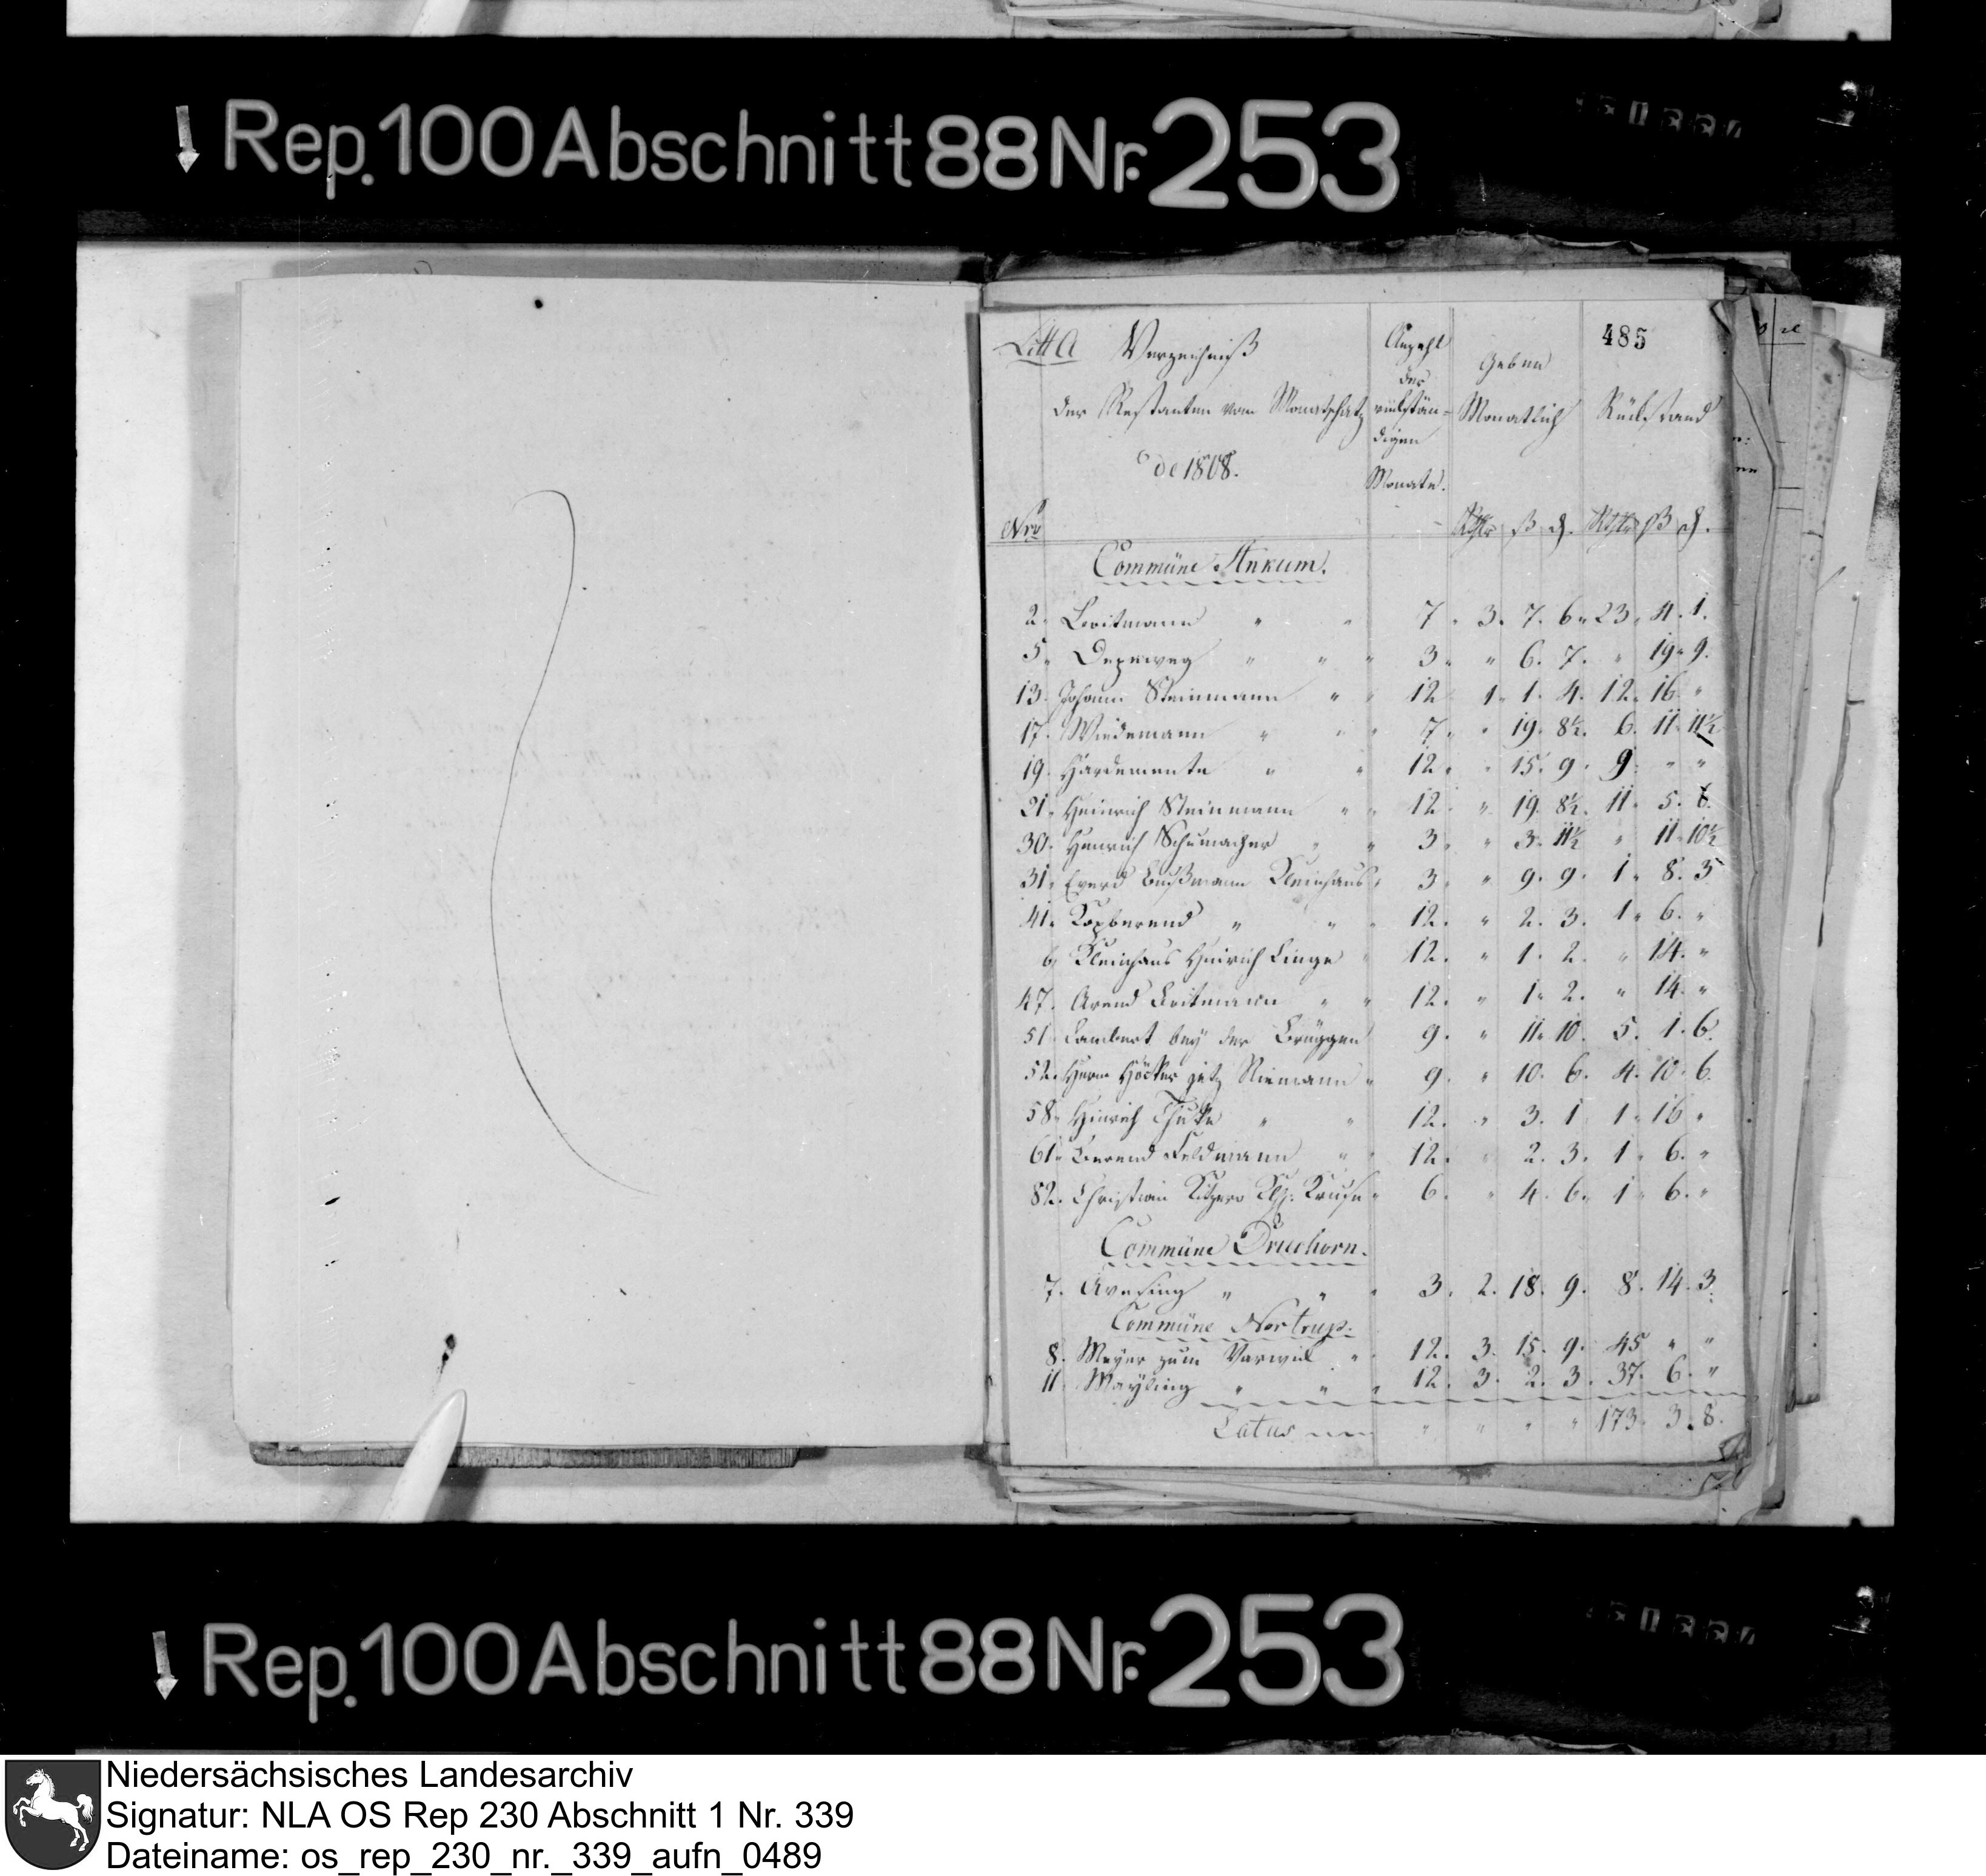 Rep. 100 Abschnitt 88 Nr. 253
485
Litt A Verzeichniß
der Restanten vom Monatschatz
de 1808.
Anzahl
der
rückstän-
digen
Monate.
Geben
Monatlich
Rückstand
Nro Rthlr ß d. Rthlr ß d.
Commüne Ankum.
2. Britmann " " 7 " 3. 7. 6 " 23. 4. 1.
5. Dezeweg " " " 3 " " 6. 7. " 19 " 9.
13. Johann Steinmann " " 12 1 " 1. 4. 12. 16. "
17. Wiedemann " " " 7 " " 19. 8½. 6. 11 " 11½
19. Hardemente " " 12. " 15. 9. 9. " "
21. Heinrich Steinmann " " 12. " 19. 8½. 11. 5. 6.
30. Henrich Schumacher " " 3. " 3. 11½ " 11 " 10½
31. Everd Bußmann Kleinhaus 3. " 9. 9. 1. 8. 3
41. Kopberend " " " 12. " 2. 3. 1. 6. "
6 Kleinhaus Heinrich Linge " 12. " 1. 2. " 14. "
47. Arend Britmann " " 12. " 1. 2. " 14. "
51. Lambert bey der Brüggen 9. " 11. 10. 5. 1. 6.
52. Herm Höcker jetz Niemann " 9. " 10. 6. 4. 10. 6.
58. Hinrich " " 12. " 3. 1 1 " 16 "
61. Berend Feldmann " " 12. " 2. 3. 1 " 6. "
82. Christian Kruse " 6. " 4. 6. 1 " 6. "
Commüne Druchorn.
7. Avesing " " " 3. 2. 18. 9. 8. 14. 3.
Commüne Nortrup.
8. Meyer zum Varwiek " 12. 3. 15. 9. 45 " "
11 Mayling " " " 12. 3. 2. 3. 37. 6. "
Latus " " " " 173. 3. 8.
Rep. 100 Abschnitt 88 Nr. 253
Niedersächsisches Landesarchiv
Signatur: NLA OS Rep 230 Abschnitt 1 Nr. 339
Dateiname: os_rep_230_nr._339_aufn_0489